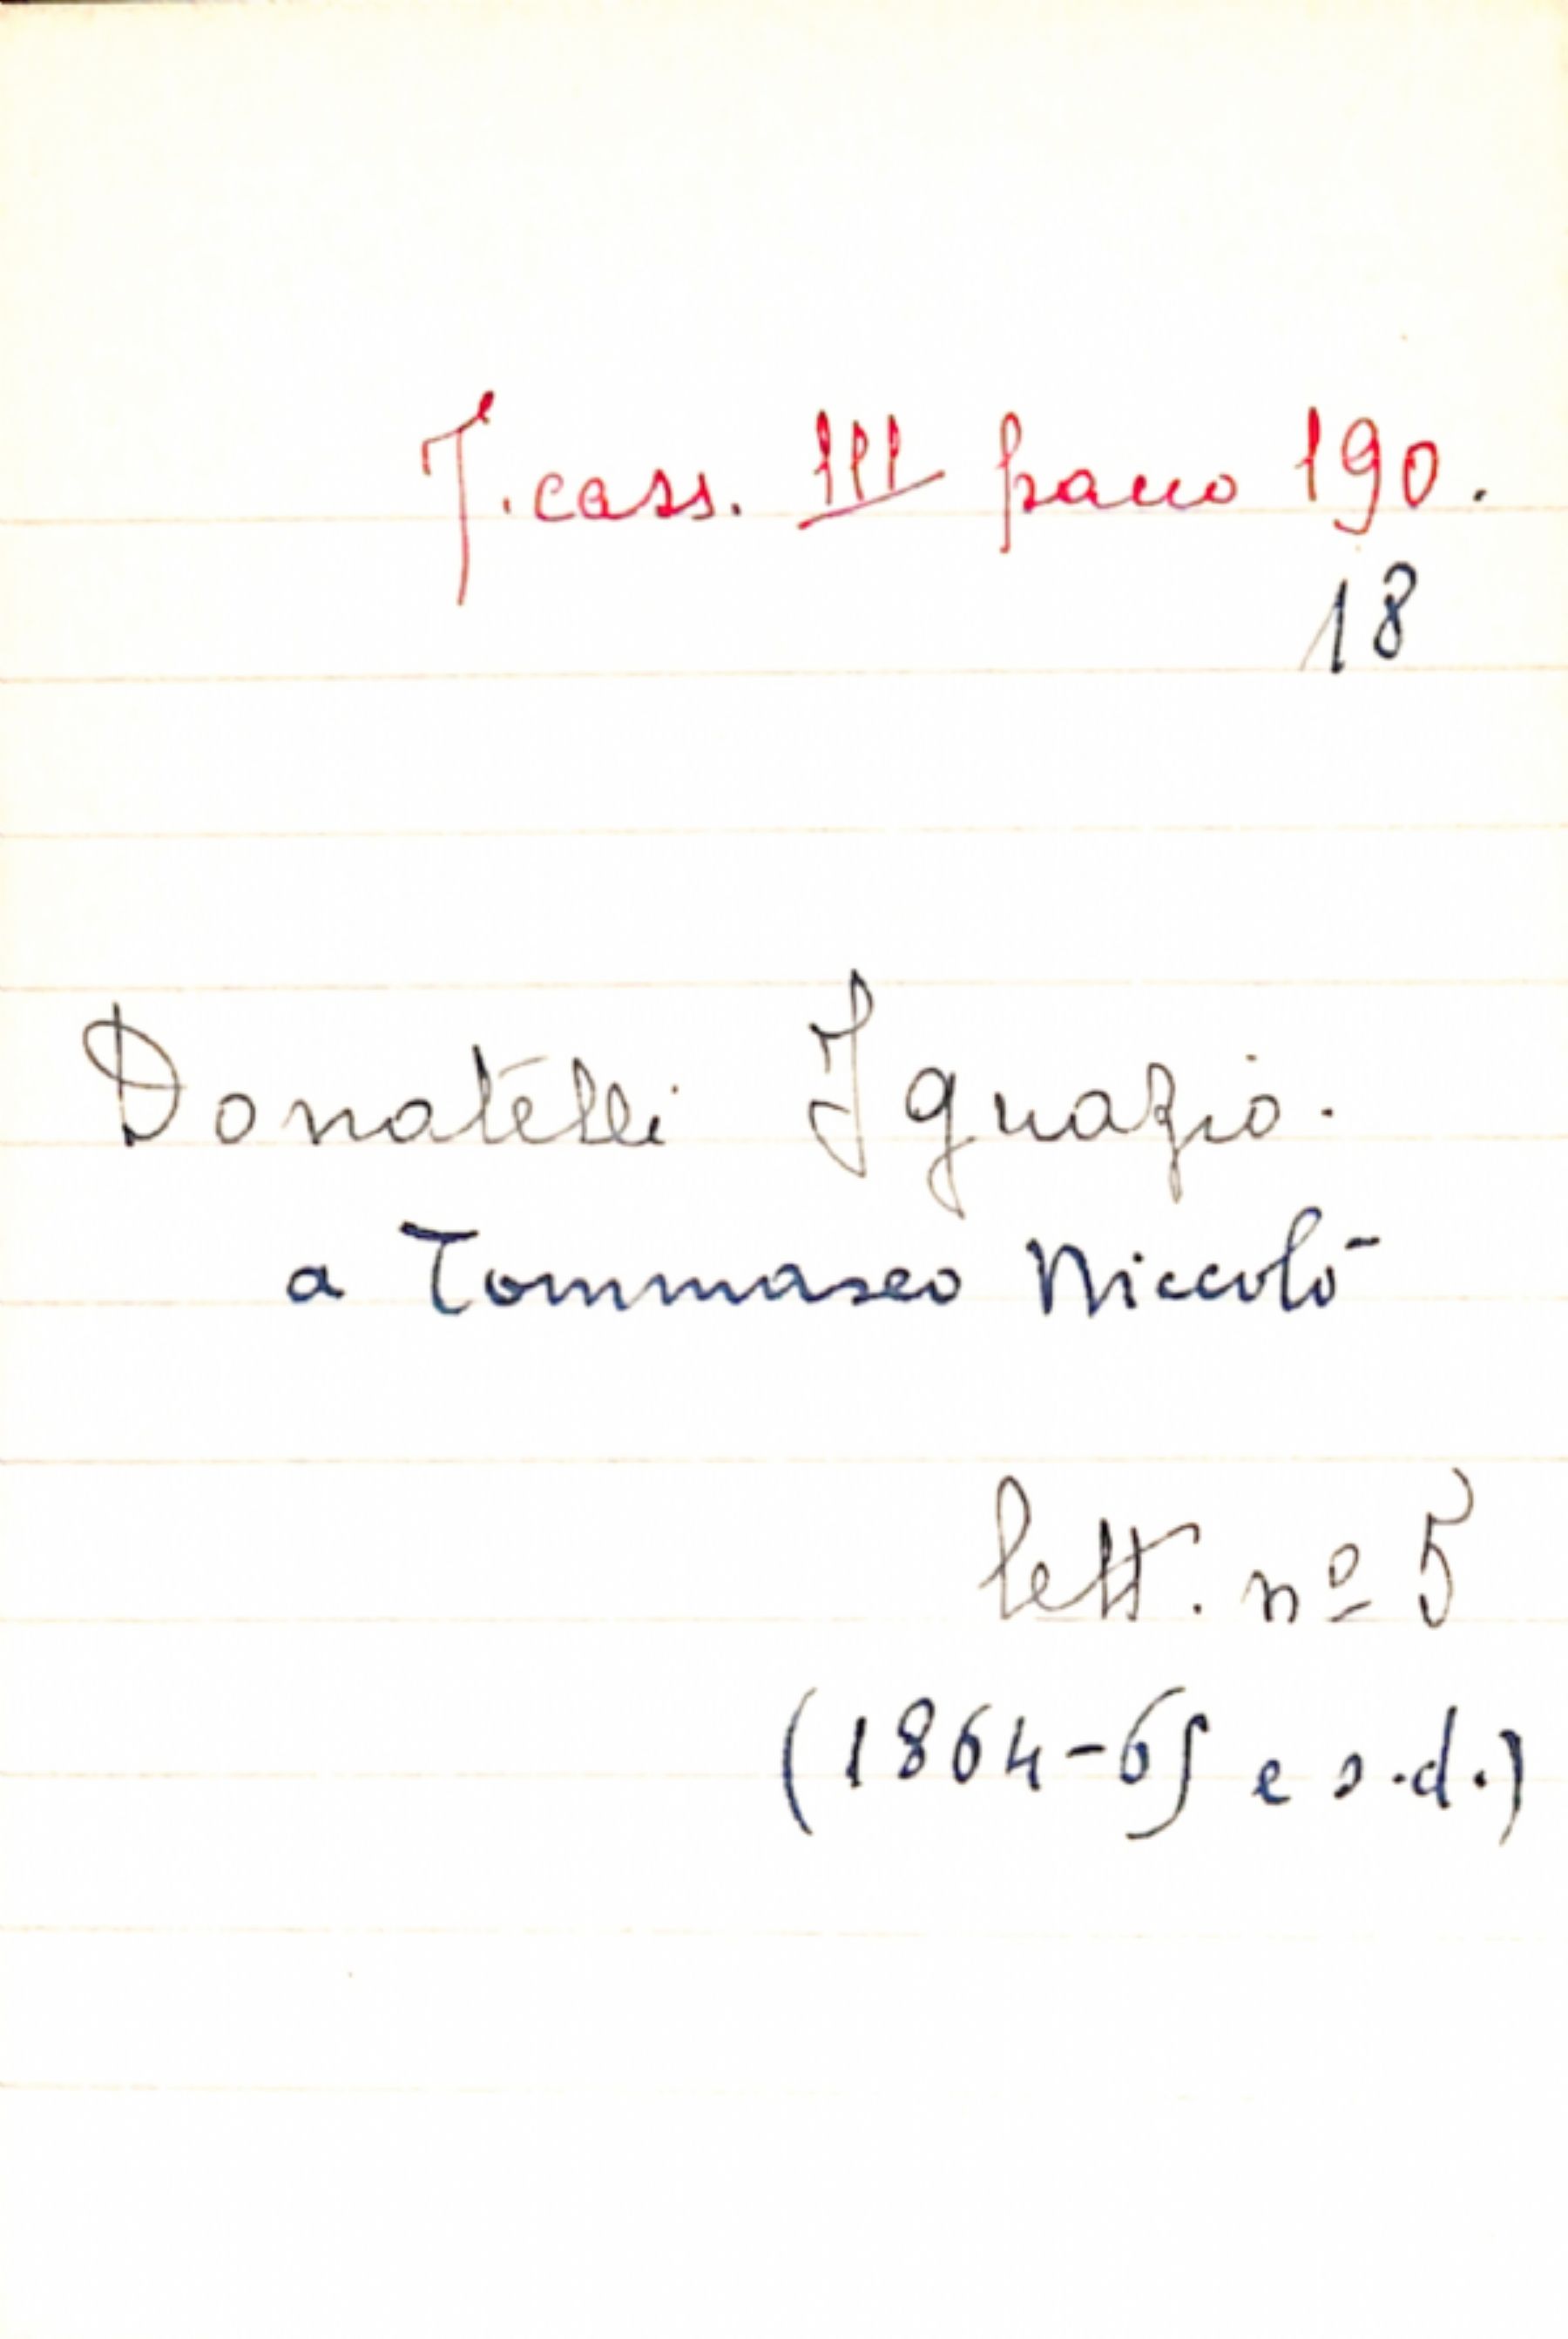 T. cass. III pacco 190.
18
Donatelli Ignazio.
a Tommaseo Niccolò
lett. nº 5
(1864-65 e s.d.)